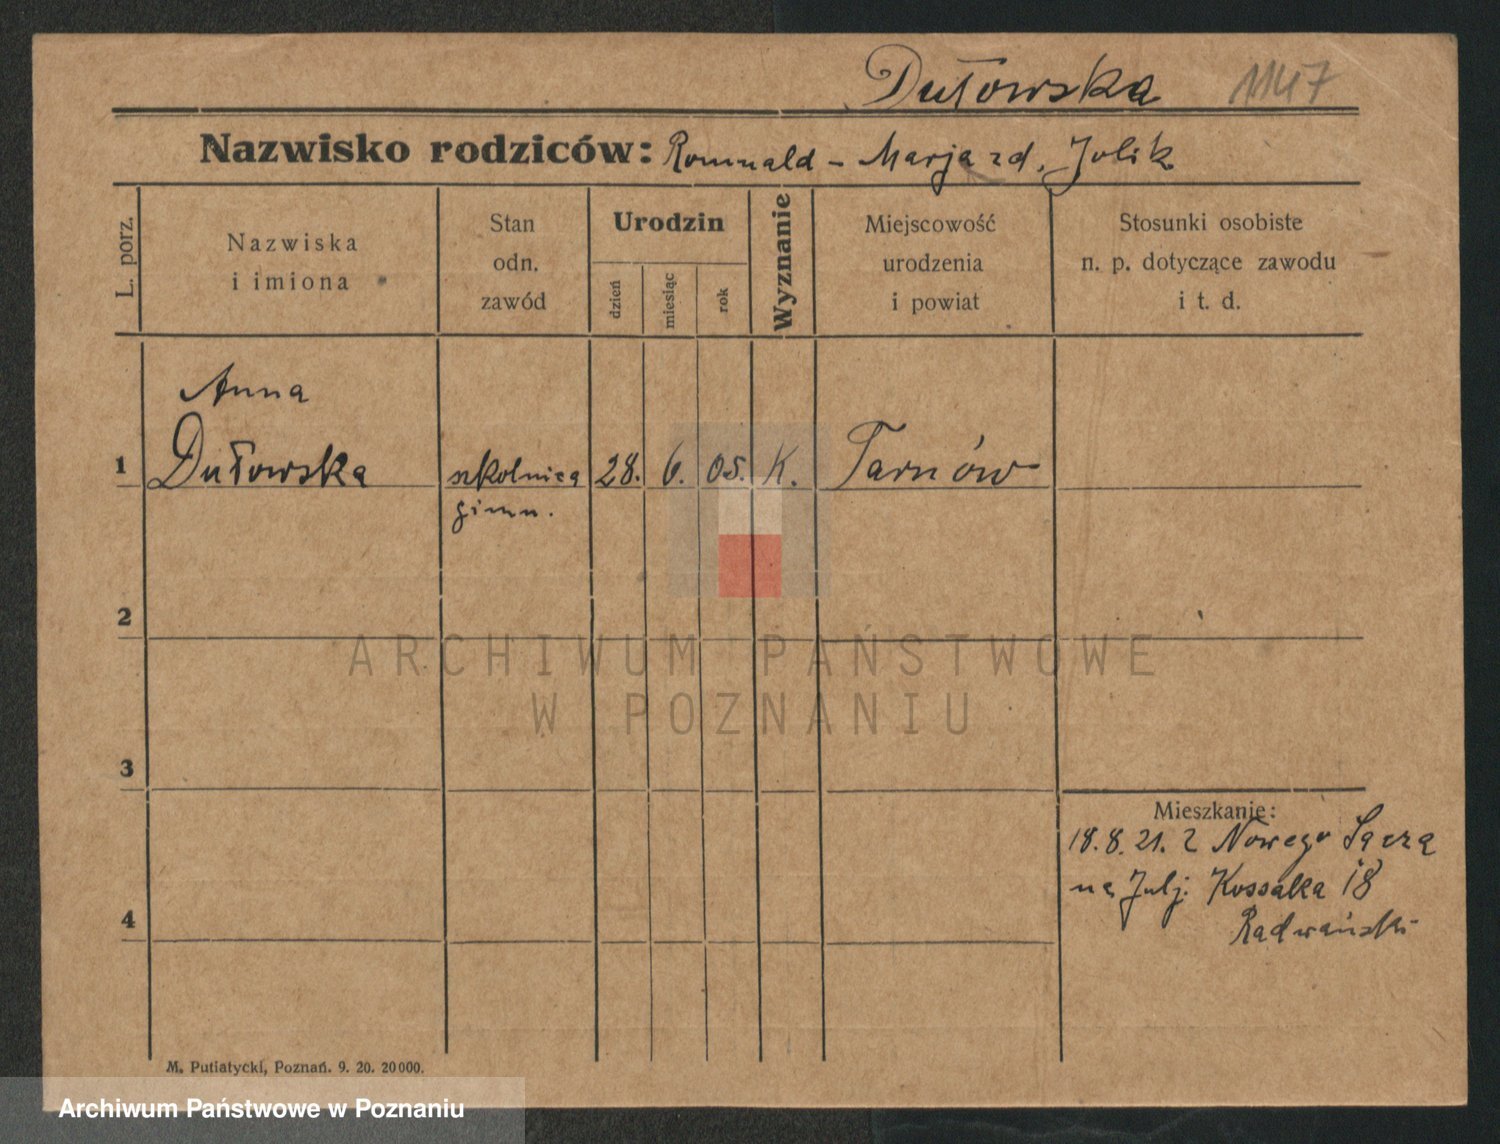 Dułowska 1147
Nazwisko rodziców: Romuald - Marja zd. Jolik
L. porz.
Nazwiska
i imiona
Stan
odn.
zawód
Urodzin
dzień
miesiąc
rok
Wyznanie
Miejscowość
urodzenia
i powiat
Stosunki osobiste
n. p. dotyczące zawodu
i t. d.
Anna
1 Dułowska szkolnica 28. 6. 05. K. Tarnów
gimn.
2
ARCHIWUM PAŃSTWOWE
W POZNANIU
3
Mieszkanie:
18.8.21. z Nowego Sącza
na Julj. Kossaka 18
Radwański
4
M. Putiatycki, Poznań. 9. 20. 20 000.
Archiwum Państwowe w Poznaniu